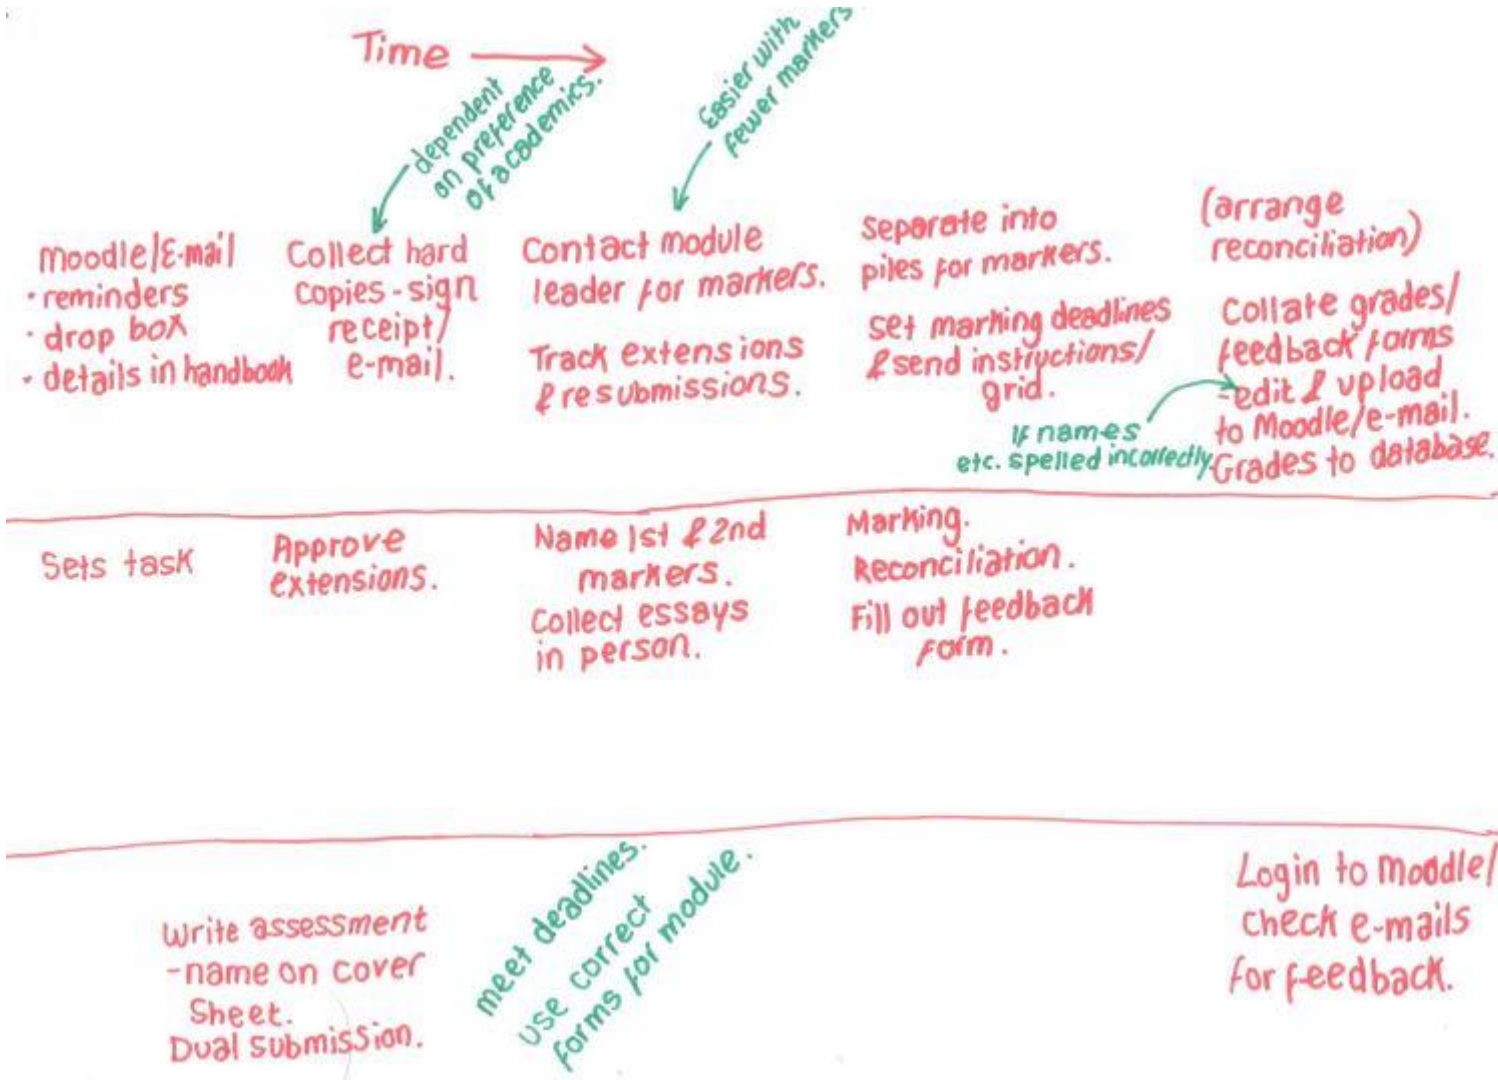 Time
dependent
on preference
of academics.
Easier with
fewer markers
Moodle/E-mail
· reminders
· drop box
· details in handbook
Collect hard
copies - sign
receipt/
e-mail.
Contact module
leader for markers.
Track extensions
& resubmissions.
Separate into
piles for markers.
Set marking deadlines
& send instructions/
grid.
If names
etc. spelled incorrectly.
(arrange
reconciliation)
Collate grades/
feedback forms
-edit & upload
to Moodle/e-mail.
Grades to database.
Sets task
Approve
extensions.
Name 1st & 2nd
markers.
Collect essays
in person.
Marking.
Reconciliation.
Fill out feedback
form.
Write assessment
-name on cover
Sheet.
Dual submission.
meet deadlines.
use correct
forms for module.
Login to Moodle/
check e-mails
for feedback.